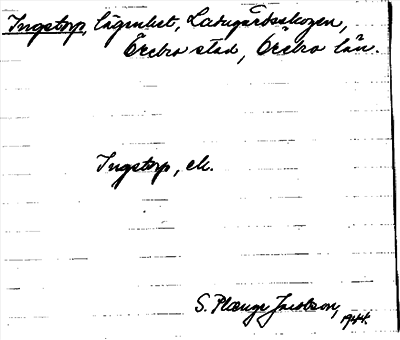 Ingstorp, lägenhet, Ladugårdsskogen,
Örebro stad, Örebro län.
Ingstorp, ek.
S. Plænge Jacobson,
1944.